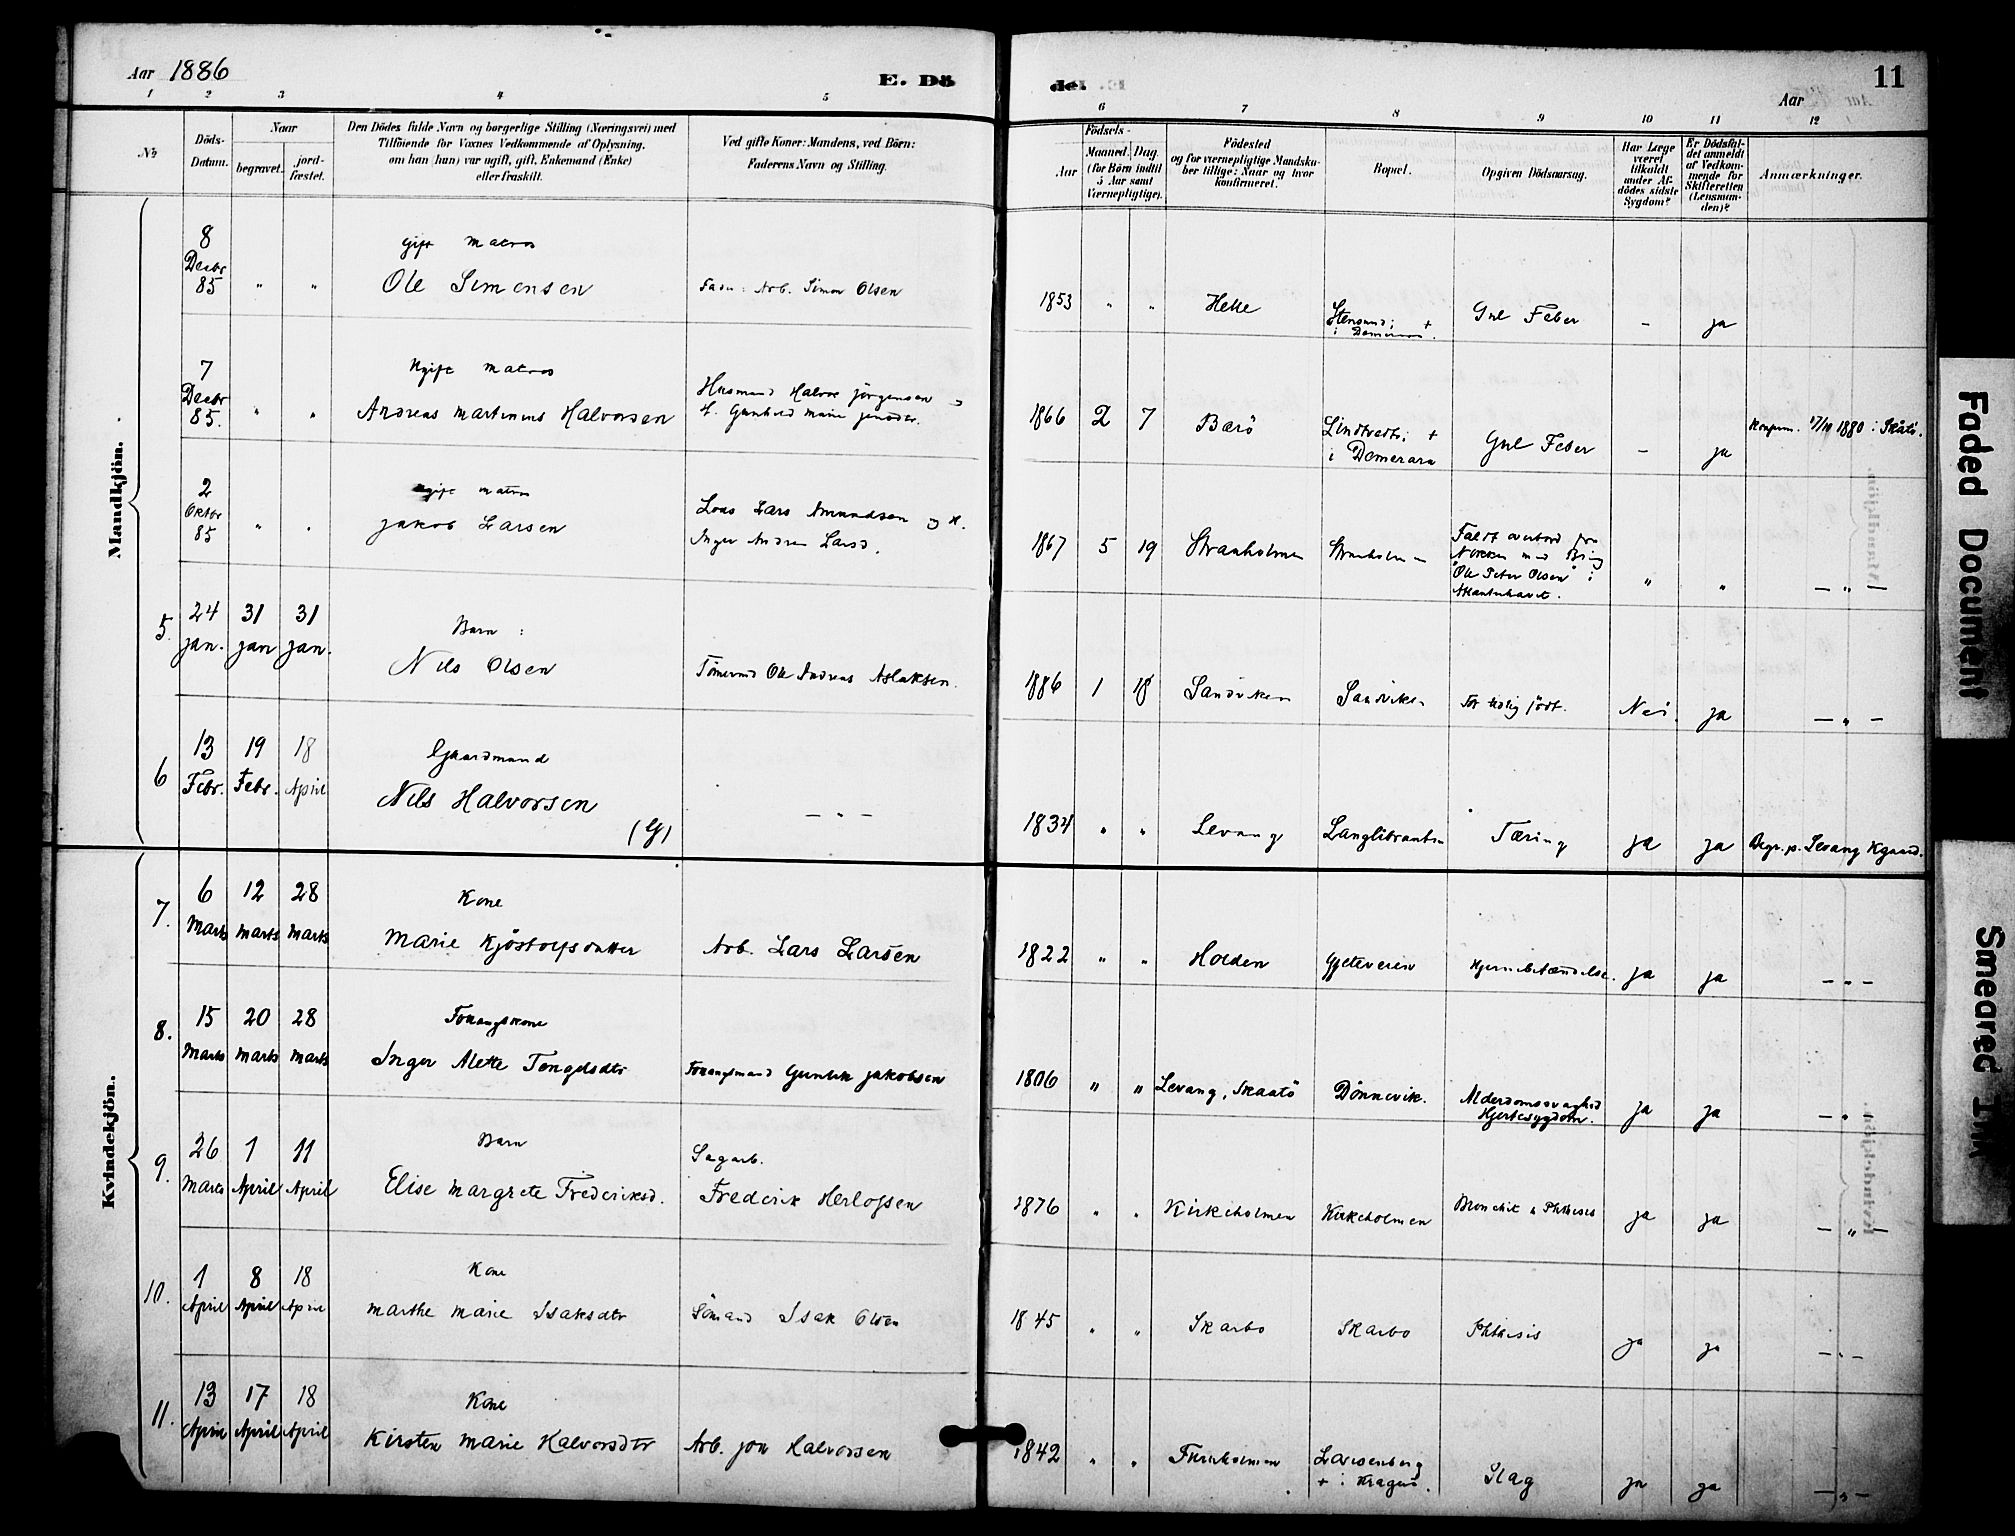 Aar 1886
E. Dö
del
11
Aar
1 2 3 4 5
6 7 8 9 10 11 12
No
Döds-
Datum.
Naar
begravet.
jord-
fæstet.
Den Dödes fulde Navn og borgerlige Stilling (Næringsvei) med
Tilföiende for Voxnes Vedkommende af Oplysning,
om han (hun) var ugift, gift, Enkemand (Enke)
eller fraskilt.
Ved gifte Koner: Mandens, ved Börn:
Faderens Navn og Stilling.
Födsels-
Aar
Maaned. Dag.
(for Börn indtil
5 Aar samt
Værnepligtige).
Födested
og for værnepligtige Mandska-
ber tillige: Naar og hvor
konfirmeret.
Bopæl.
Opgiven Dödsaarsag.
Har Læge
været
tilkaldt
under Af-
dödes sidste
Sygdom?
Er Dödsfal-
det anmeldt
af Vedkom-
mende for
Skifteretten
(Lensman-
den)?
Anmærkninger.
Mandkjön.
8
Decbr
85 " "
gift matros
Ole Simensen
Arb. Simon Olsen
1853 " " Helle
Gul Feber - ja
7
Decbr
85. " "
Ugift matros
Andreas Martinius Halvorsen
Husmand Halvor Jörgensen
1866 2 7 Barö
Lindtvedt; +
i Demerara
Gul Feber - ja
Konfirm. 1880 i Skåtö.
2
Oktbr
85 " "
ugift matros
Jakob Larsen
Lods Lars Amundsen og H.
Inger Andrea Larsd.
1867 5 19 Straaholmen Straaholmen
Faldt overbord fra
Nokken med Brig
"Ole Peter Olsen" i
Atlanterhavet.
" " — " —
5.
24 31 31
Jan. Jan Jan.
Barn :
Nils Olsen
Tömmermd Ole Andreas Aslaksen.
1886 1 18 Sandviken Sandviken For tidlig födt. Nei. ja — " —
6
13 19 18
Febr. Febr. April
Gaardmand
Nils Halvorsen
(G)
— " —
1834 " " Levang Langlibraaten Tæring ja ja Begr. p. Levang Kgaard.
Kvindekjön.
7.
6 12 28
Marts Marts Marts
Kone
Marie Kjöstolfsdatter
Arb. Lars Larsen
1822 " " Holden Gjeteveien Hjernebetændelse. ja ja — " —
8.
15 20 28
Marts Marts Marts
Foraugskone
Inger Alette Tengelsdtr
Foraugsmand Gunlek Jakobsen
1806 " " Levang, Skaatö Dönnevik. Alderdomssvaghed
Hjertesygdom. ja ja — "
9.
26 1 11
Marts April April
Barn
Elise Margrete Frederiksd.
Sagarb.
Frederik Herlofsen
1876 " " Kirkeholmen Kirkeholmen Bronchit & Phthisis ja ja — " —
10.
1 8 18
April April April
Kone
Marthe Marie Isaksdtr
Sömand Isak Olsen
1845 " " Skarbo Skarbo Phthisis ja ja — " —
11.
13 17 18
April April April
Kone
Kirsten Marie Halvorsdtr
Arb. Jon Halvorsen
1842 " " Furuholmen Larsenberg
+ i Kragerö.
Slag ja ja — " —
Faded Document
Smeared Ink